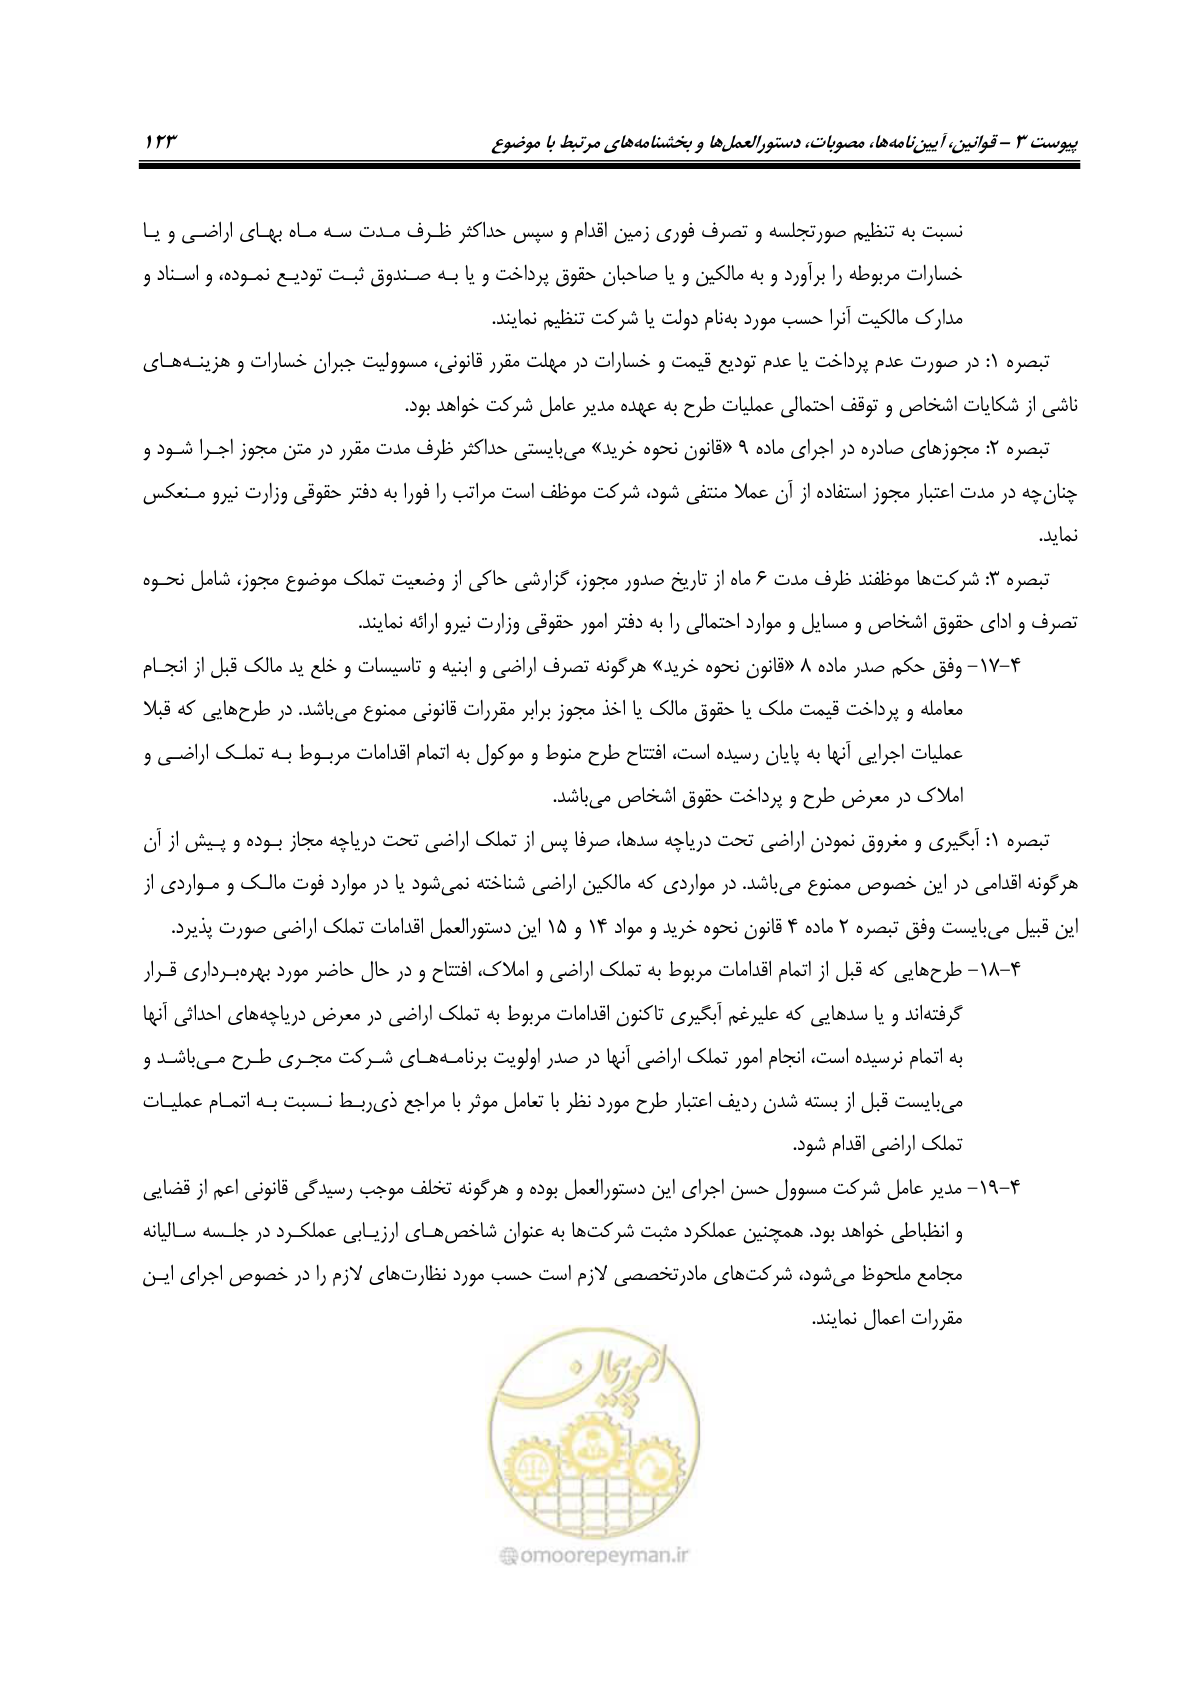 پیوست ۳ – قوانین، آیین‌نامه‌ها، مصوبات، دستورالعمل‌ها و بخشنامه‌های مرتبط با موضوع ۱۲۳
نسبت به تنظیم صورتجلسه و تصرف فوری زمین اقدام و سپس حداکثر ظرف مدت سه ماه بهای اراضی و یا
خسارات مربوطه را برآورد و به مالکین و یا صاحبان حقوق پرداخت و یا به صندوق ثبت تودیع نموده، و اسناد و
مدارک مالکیت آنرا حسب مورد به‌نام دولت یا شرکت تنظیم نمایند.
تبصره ۱: در صورت عدم پرداخت یا عدم تودیع قیمت و خسارات در مهلت مقرر قانونی، مسوولیت جبران خسارات و هزینه‌های
ناشی از شکایات اشخاص و توقف احتمالی عملیات طرح به عهده مدیر عامل شرکت خواهد بود.
تبصره ۲: مجوزهای صادره در اجرای ماده ۹ «قانون نحوه خرید» می‌بایستی حداکثر ظرف مدت مقرر در متن مجوز اجرا شود و
چنان‌چه در مدت اعتبار مجوز استفاده از آن عملا منتفی شود، شرکت موظف است مراتب را فورا به دفتر حقوقی وزارت نیرو منعکس
نماید.
تبصره ۳: شرکت‌ها موظفند ظرف مدت ۶ ماه از تاریخ صدور مجوز، گزارشی حاکی از وضعیت تملک موضوع مجوز، شامل نحوه
تصرف و ادای حقوق اشخاص و مسایل و موارد احتمالی را به دفتر امور حقوقی وزارت نیرو ارائه نمایند.
۴-۱۷- وفق حکم صدر ماده ۸ «قانون نحوه خرید» هرگونه تصرف اراضی و ابنیه و تاسیسات و خلع ید مالک قبل از انجام
معامله و پرداخت قیمت ملک یا حقوق مالک یا اخذ مجوز برابر مقررات قانونی ممنوع می‌باشد. در طرح‌هایی که قبلا
عملیات اجرایی آنها به پایان رسیده است، افتتاح طرح منوط و موکول به اتمام اقدامات مربوط به تملک اراضی و
املاک در معرض طرح و پرداخت حقوق اشخاص می‌باشد.
تبصره ۱: آبگیری و مغروق نمودن اراضی تحت دریاچه سدها، صرفا پس از تملک اراضی تحت دریاچه مجاز بوده و پیش از آن
هرگونه اقدامی در این خصوص ممنوع می‌باشد. در مواردی که مالکین اراضی شناخته نمی‌شود یا در موارد فوت مالک و مواردی از
این قبیل می‌بایست وفق تبصره ۲ ماده ۴ قانون نحوه خرید و مواد ۱۴ و ۱۵ این دستورالعمل اقدامات تملک اراضی صورت پذیرد.
۴-۱۸- طرح‌هایی که قبل از اتمام اقدامات مربوط به تملک اراضی و املاک، افتتاح و در حال حاضر مورد بهره‌برداری قرار
گرفته‌اند و یا سدهایی که علیرغم آبگیری تاکنون اقدامات مربوط به تملک اراضی در معرض دریاچه‌های احداثی آنها
به اتمام نرسیده است، انجام امور تملک اراضی آنها در صدر اولویت برنامه‌های شرکت مجری طرح می‌باشد و
می‌بایست قبل از بسته شدن ردیف اعتبار طرح مورد نظر با تعامل موثر با مراجع ذی‌ربط نسبت به اتمام عملیات
تملک اراضی اقدام شود.
۴-۱۹- مدیر عامل شرکت مسوول حسن اجرای این دستورالعمل بوده و هرگونه تخلف موجب رسیدگی قانونی اعم از قضایی
و انظباطی خواهد بود. همچنین عملکرد مثبت شرکت‌ها به عنوان شاخص‌های ارزیابی عملکرد در جلسه سالیانه
مجامع ملحوظ می‌شود، شرکت‌های مادرتخصصی لازم است حسب مورد نظارت‌های لازم را در خصوص اجرای این
مقررات اعمال نمایند.
امور پیمان
omoorepeyman.ir